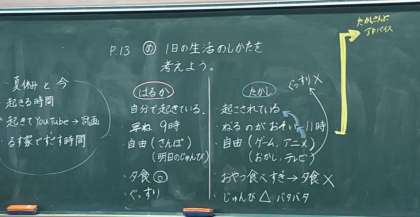 P.13 め 1日の生活のしかたを
考えよう。
たかしさんに
アドバイス
夏休みと今
起きる時間
起きてYouTube→計画
家ですごす時間
はるか
・自分で起きている。
・早ね 9時
・自由(さんぽ)
(明日のじゅんび)
・夕食◎
・ぐっすり
たかし
ぐっすり×
・起こされている
・ねるのがおそい 11時
・自由(ゲーム、アニメ)
(おかし、テレビ)
・おやつ食べすぎ→夕食×
・じゅんび△ バタバタ